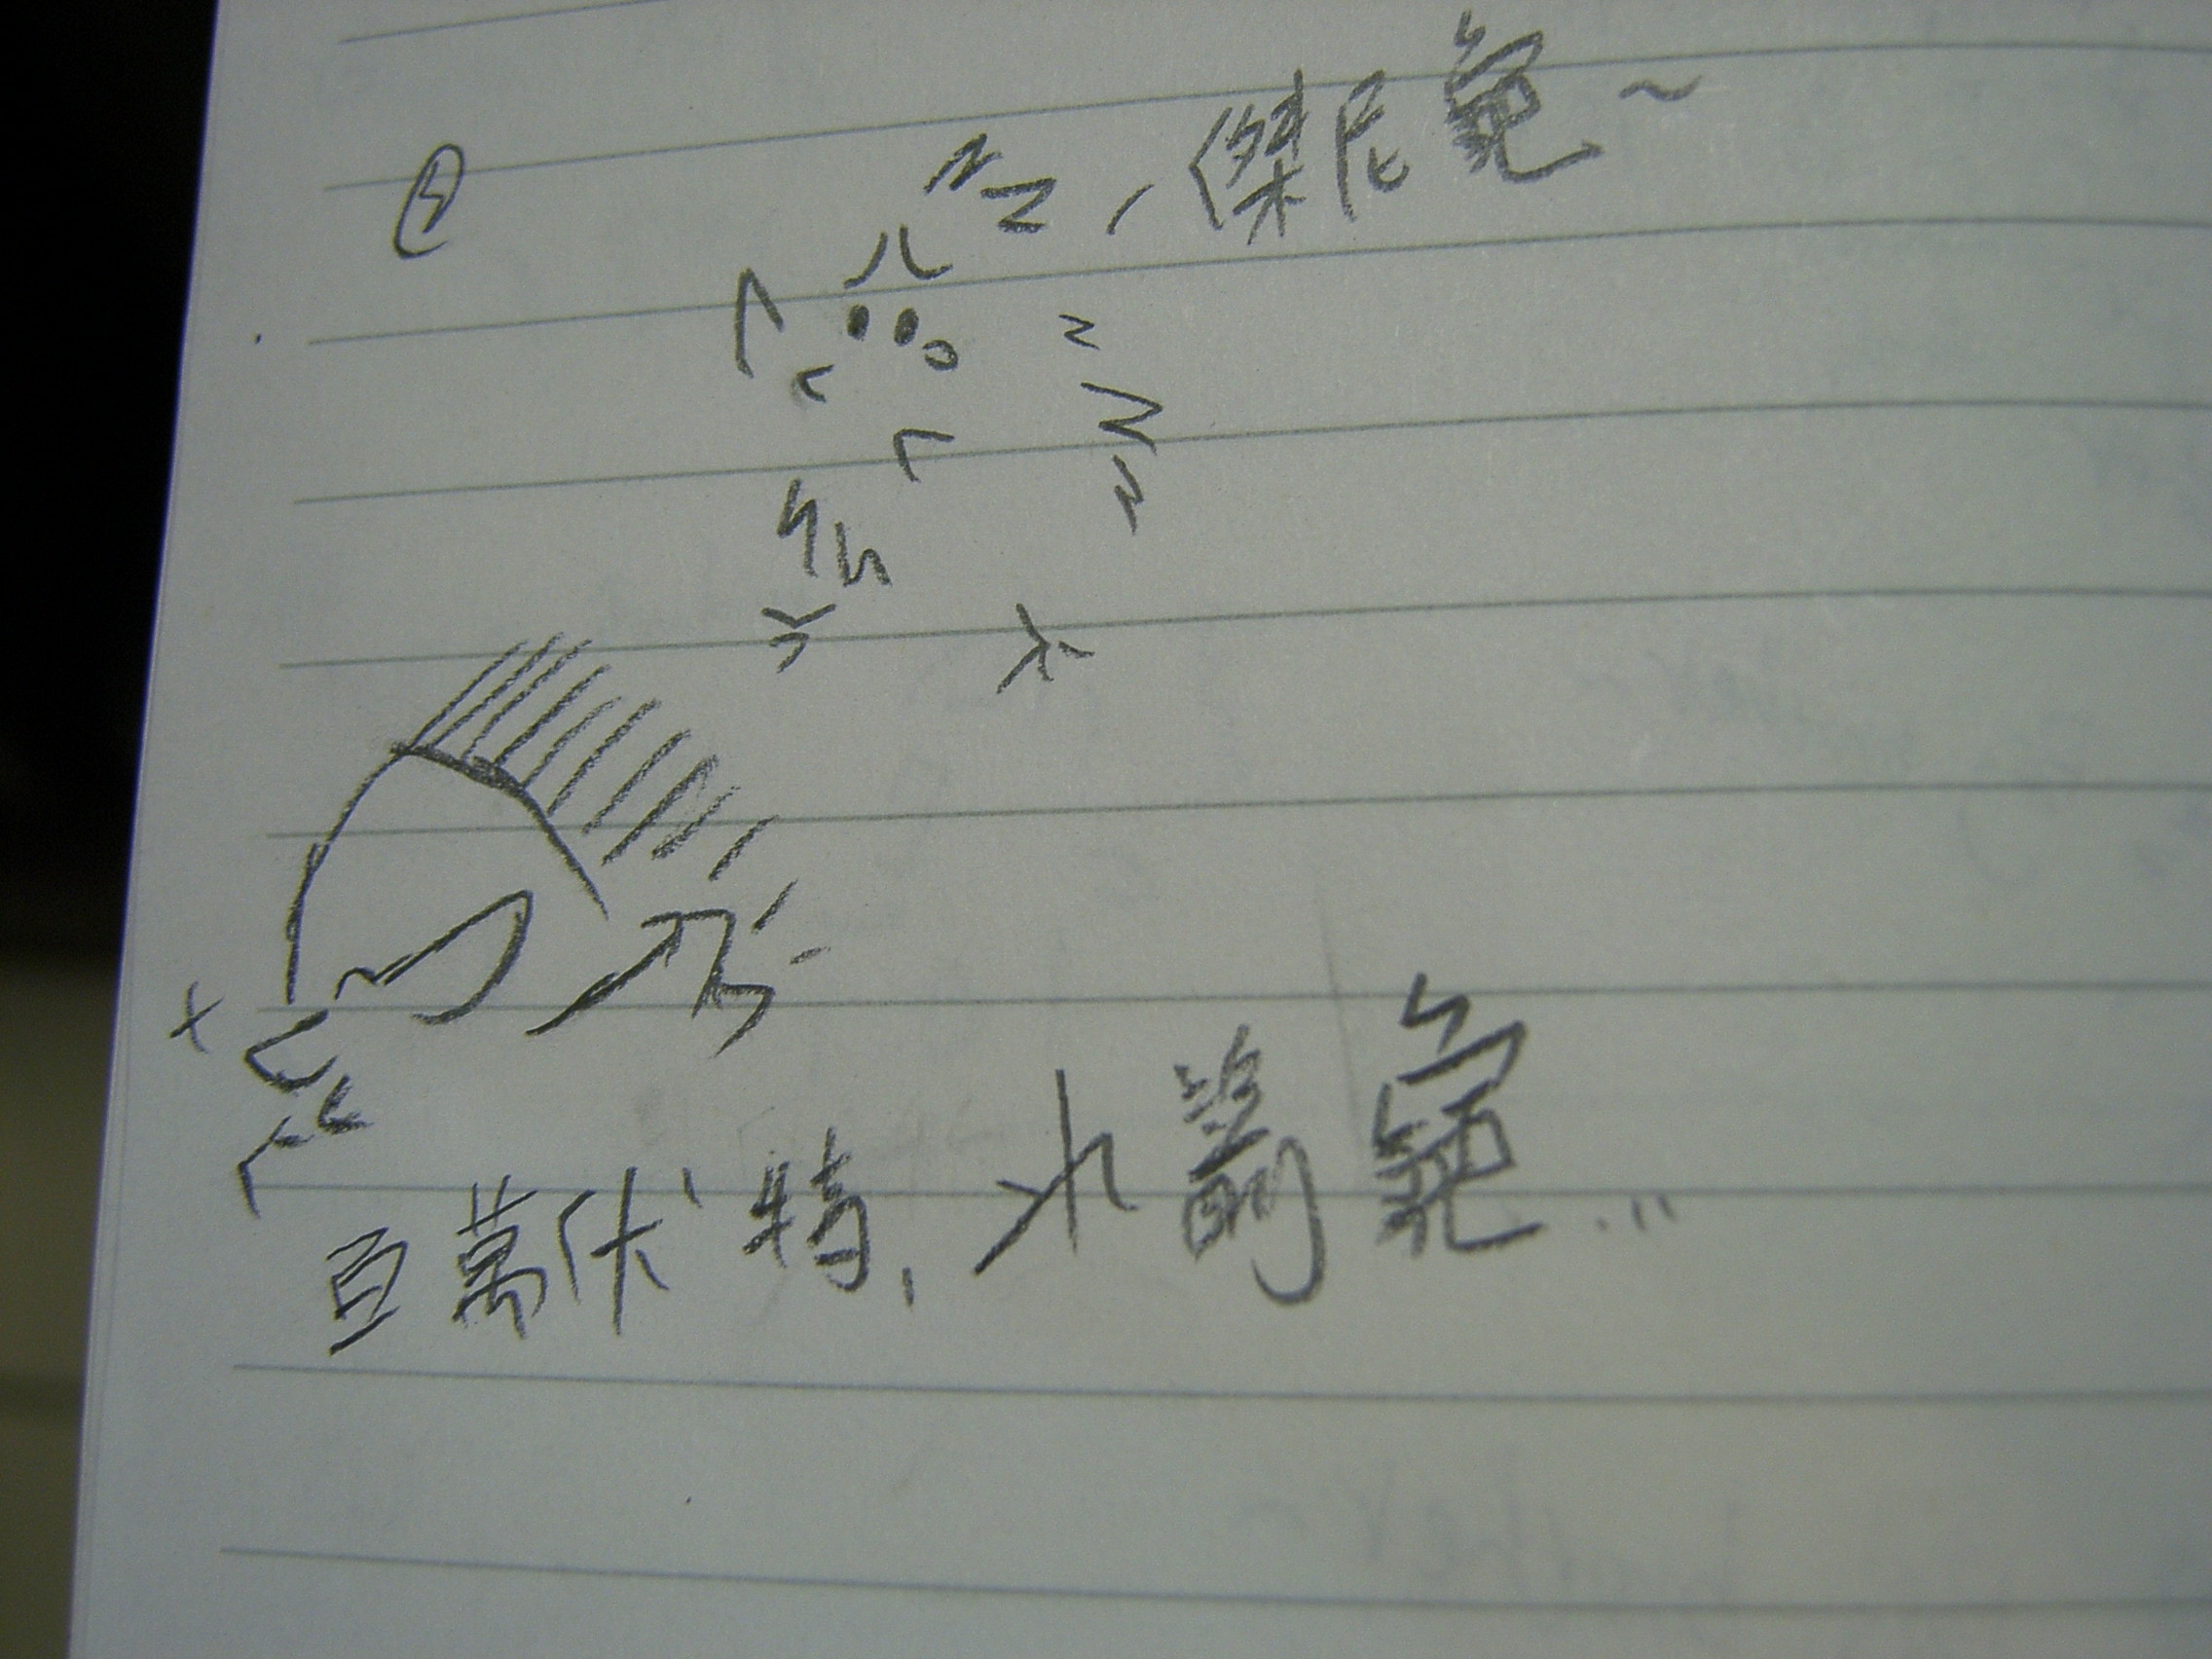 傑尼龜~
百萬伏特，水箭龜...